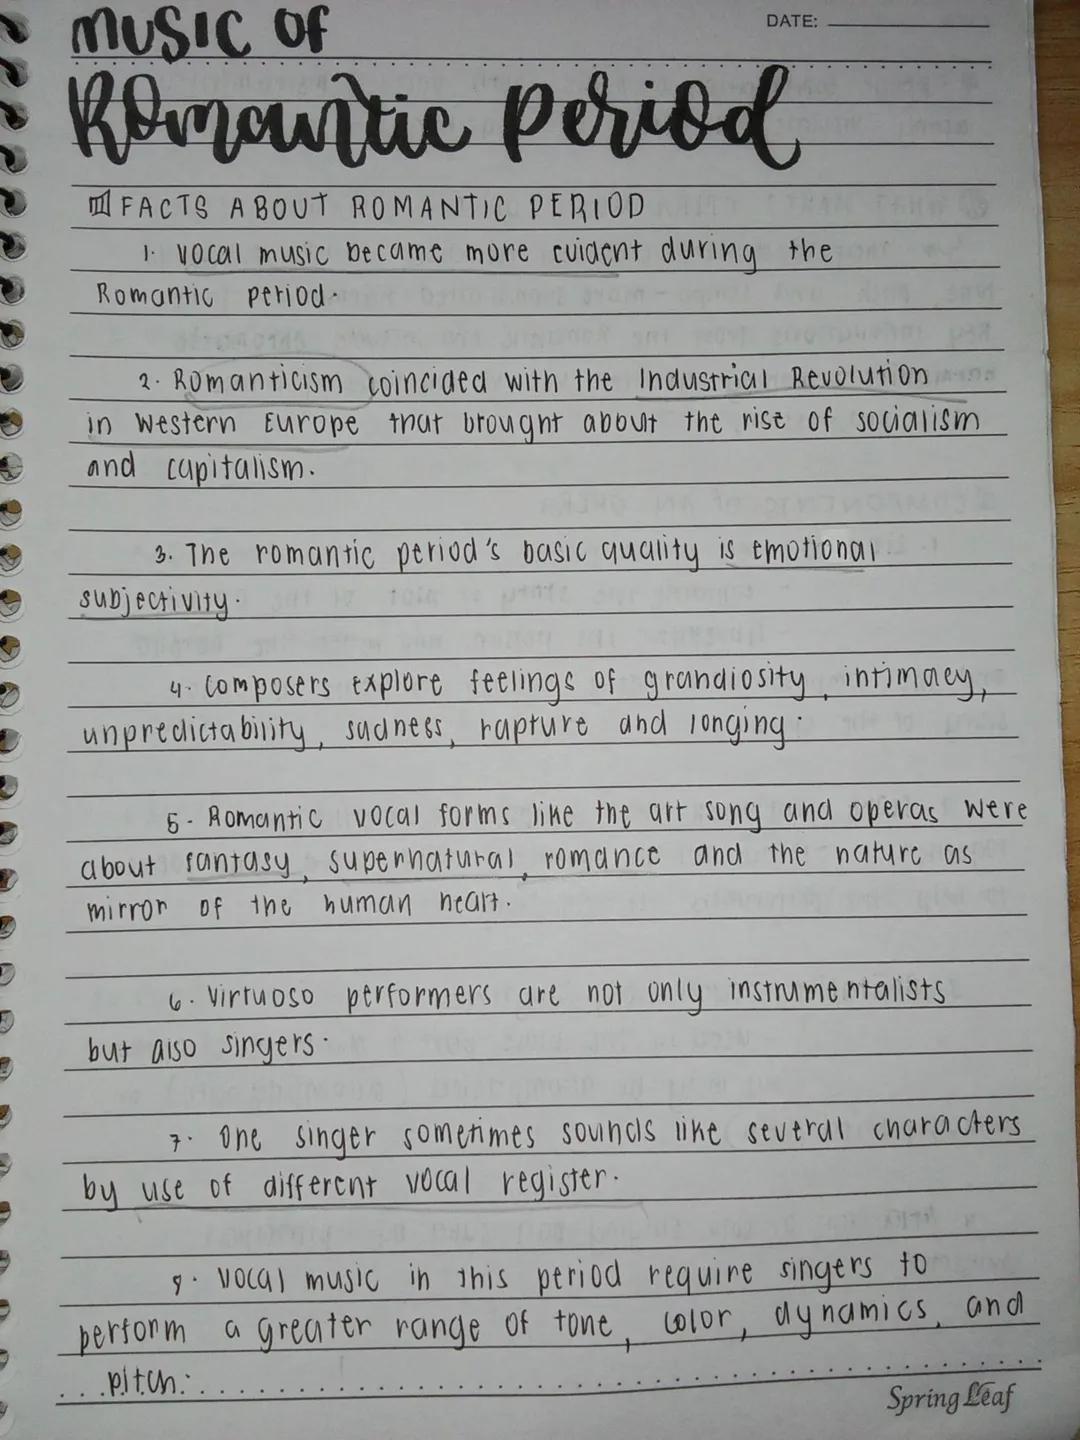 MUSIC OF
DATE:
Romantic period
FACTS ABOUT ROMANTIC PERIOD
1. vocal music became more evident during the
Romantic period.
2. Romanticism coincided with the Industrial Revolution
in Western Europe that brought about the rise of socialism
and capitalism.
3. The romantic period's basic quality is emotional
subjectivity.
4. Composers explore feelings of grandiosity, intimacy,
unpredictability, sadness, rapture and longing.
5. Romantic vocal forms like the art song and operas were
about fantasy, supernatural, romance and the nature as
mirror of the human heart.
6. Virtuoso performers are not only instrumentalists
but also singers.
7. One singer sometimes sounds like several characters
by use of different vocal register.
8. Vocal music in this period require singers to
perform a greater range of tone, color, dynamics, and
pitch.
Spring Leaf